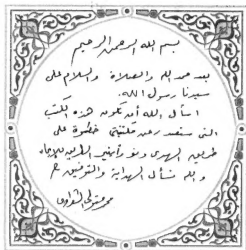 بسم الله الرحمن الرحيم
بعد حمد الله والصلاة والسلام على
سيدنا رسول الله.
أسأل الله أن تكون هذه الكتب
التى ستصدر عن مكتبتى خطوة على
طريق الهدى ونور
والله نسأل الهداية والتوفيق
محمد متولى الشعراوى